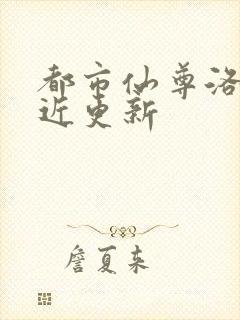 都市仙尊洛
近更新
詹夏来